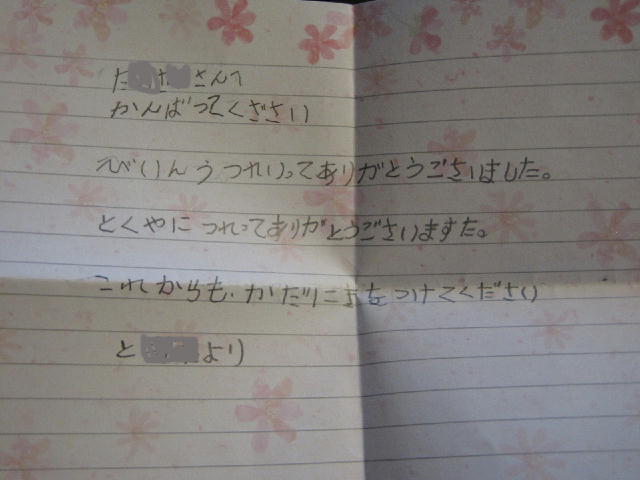 た さ さんへ
がんばってくざさい
えべいんうつれいってありがとうございました。
とくやにつれってありがとうございますた。
これからも、かだにきをつけてください
と より